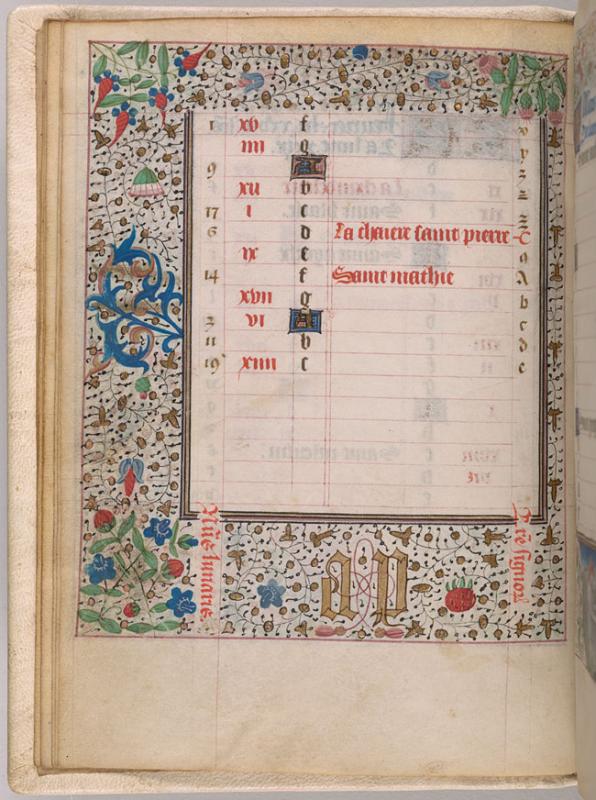 xv f
iiii g y
9 A z
xii b
17 i c
6 d La chaiere saint pierre
ix e 9
14 f Saint mathie A
xvii g b
3 vi A c
11 b d
19 xiiii c e